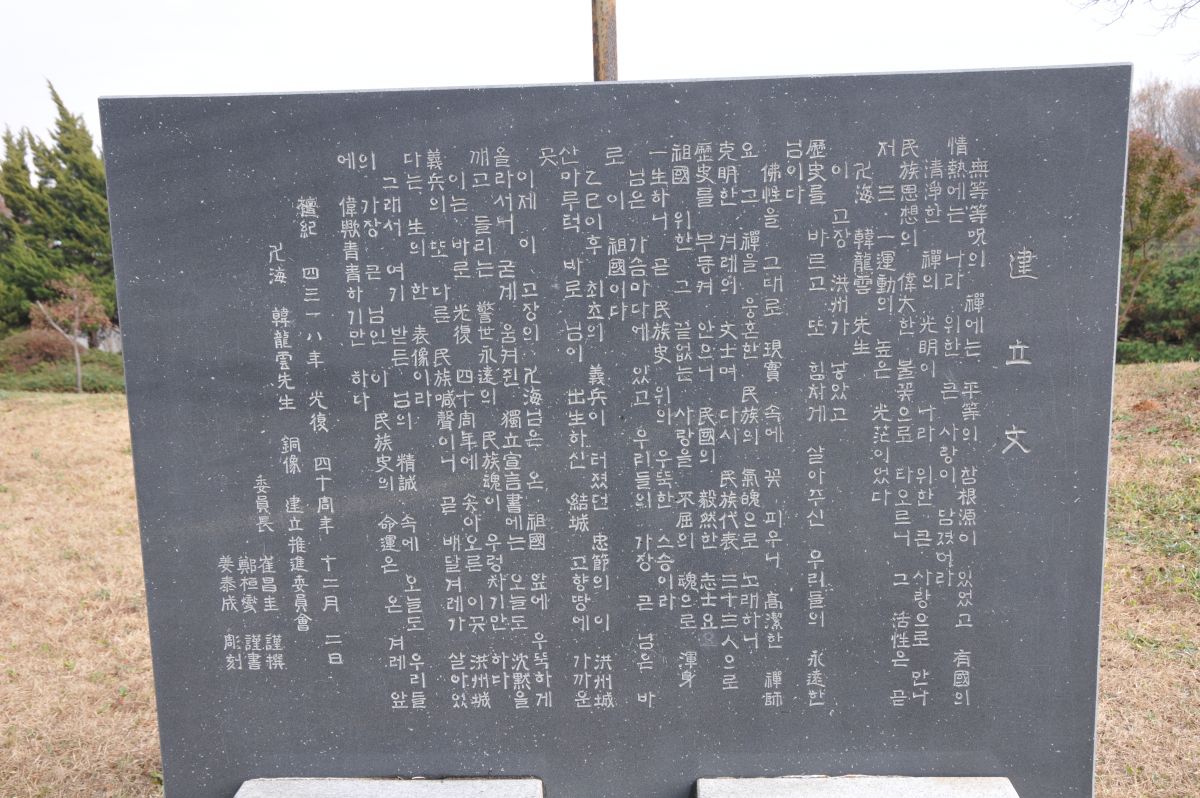 建立文
無等等呪의 禪에는 平等의 참根源이 있었고 有國의
情熱에는 나라 위한 큰 사랑이 담겼어라
清淨한 禪의 光明이 나라 위한 큰 사랑으로 만나
民族思想의 偉大한 불꽃으로 타오르니 그 活性은 곧
저 三·一運動의 높은 光茫이었다
卍海 韓龍雲 先生
이 고장 洪州가 낳았고
歷史를 바르고 또 힘차게 살아주신 우리들의 永遠한
님이다
佛性을 그대로 現實 속에 꽃 피우니 高潔한 禪師
요 그 禪을 웅혼한 民族의 氣魄으로 노래하니
克明한 겨레의 文士며 다시 民族代表 三十三人으로
歷史를 부둥켜 안으니 民國의 毅然한 志士요
祖國 위한 그 끝없는 사랑을 不屈의 魂으로 渾身
一生하니 곧 民族史 위의 우뚝한 스승이라
님은 가슴마다에 있고 우리들의 가장 큰 님은 바
로 이 祖國이다
乙巳이후 최초의 義兵이 터졌던 忠節의 이 洪州城
산마루턱 바로 님이 出生하신 結城 고향땅에 가까운
곳
이제 이 고장의 卍海님은 온 祖國 앞에 우뚝하게
올라서서 굳게 움켜쥔 獨立宣言書에는 오늘도 沈黙을
깨고 들리는 警世永遠의 民族魂이 우렁차기만 하다
이는 바로 光復 四十周年에 솟아오른 이곳 洪州城
義兵의 또 다른 民族喊聲이니 곧 배달겨레가 살아있
다는 生의 한 表像이라
그래서 여기 받든 님의 精誠 속에 오늘도 우리들
의 가장 큰 님인 이 民族史의 命運은 온 겨레 앞
에 偉歟青青하기만 하다
檀紀 四三一八年 光復 四十周年 十二月 二日
卍海 韓龍雲先生 銅像 建立推進委員會
委員長 崔昌圭 謹撰
鄭桓燮 謹書
姜泰成 彫刻